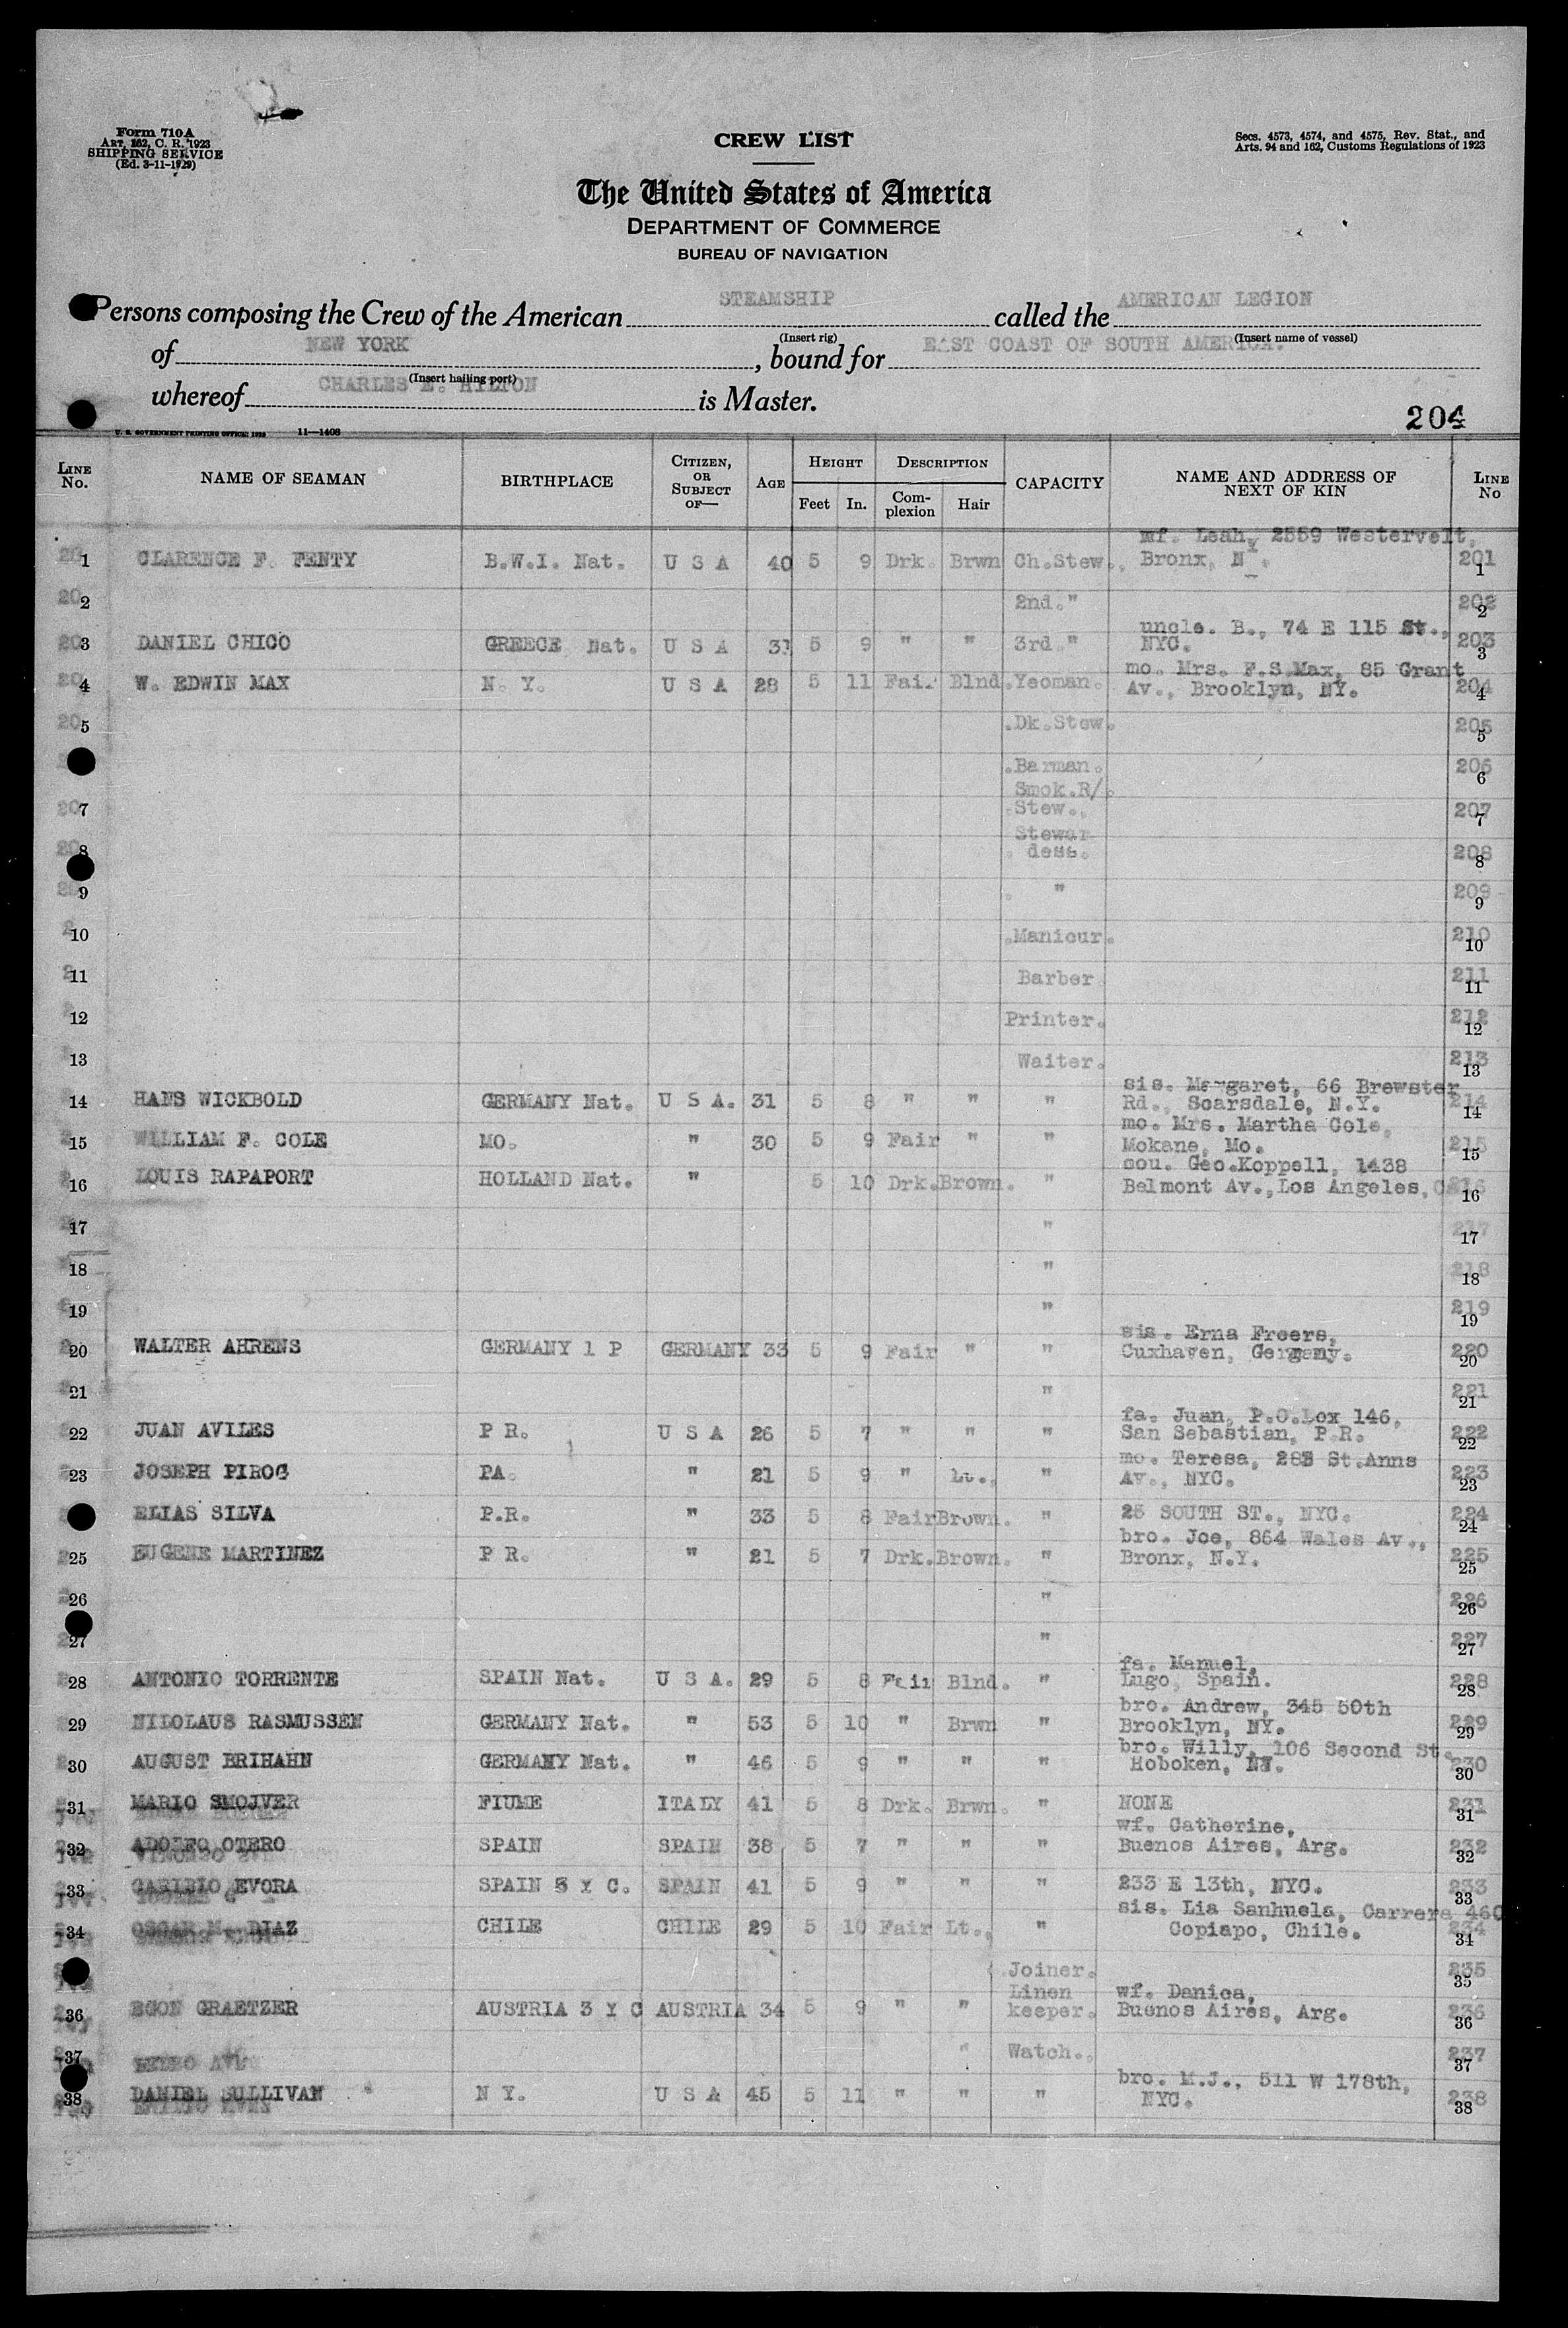 Form 710A
ART. 262, C. R. 1923
SHIPPING SERVICE
(Ed. 3-11-1929)
CREW LIST
Secs. 4573, 4574, and 4575, Rev. Stat., and
Arts. 94 and 162, Customs Regulations of 1923
The United States of America
DEPARTMENT OF COMMERCE
BUREAU OF NAVIGATION
Persons composing the Crew of the American STEAMSHIP called the AMERICAN LEGION
(Insert rig) (Insert name of vessel)
of NEW YORK, bound for EAST COAST OF SOUTH AMERICA.
(Insert hailing port)
whereof CHARLES E. HILTON is Master.
204
U. S. GOVERNMENT PRINTING OFFICE: 1929 11—1408
LINE No. NAME OF SEAMAN BIRTHPLACE CITIZEN, OR SUBJECT OF— AGE HEIGHT Feet In. DESCRIPTION Complexion Hair CAPACITY NAME AND ADDRESS OF NEXT OF KIN LINE No
wf. Leah, 2559 Westervelt,
1 CLARENCE F. FENTY B.W.I. Nat. U S A 40 5 9 Drk. Brwn Ch.Stew. Bronx, NY. 201 1
2 2nd. " 202 2
uncle. B., 74 E 115 St.,
3 DANIEL CHICO GREECE Nat. U S A 31 5 9 " " 3rd. " NYC. 203 3
mo. Mrs. F.S.Max, 85 Grant
4 W. EDWIN MAX N. Y. U S A 28 5 11 Fair Blnd. Yeoman. Av., Brooklyn, NY. 204 4
5 Dk.Stew. 205 5
Barman. 206 6
Smok.R/.
7 Stew. 207 7
Stewar
8 dess. 208 8
9 " 209 9
10 Manicur. 210 10
11 Barber 211 11
12 Printer. 212 12
13 Waiter. 213 13
sis. Margaret, 66 Brewster
14 HANS WICKBOLD GERMANY Nat. U S A. 31 5 8 " " " Rd., Scarsdale, N.Y. 214 14
mo. Mrs. Martha Cole,
15 WILLIAM F. COLE MO. " 30 5 9 Fair " " Mokane, Mo. 215 15
cou. Geo.Koppell, 1438
16 LOUIS RAPAPORT HOLLAND Nat. " 5 10 Drk. Brown. " Belmont Av.,Los Angeles, 16
17 " 217 17
18 " 218 18
19 " 219 19
sis. Erna Freers,
20 WALTER AHRENS GERMANY 1 P GERMANY 33 5 9 Fair " " Cuxhaven, Germany. 220 20
21 " 221 21
fa. Juan, P.O.Box 146,
22 JUAN AVILES P R. U S A 26 5 7 " " " San Sebastian, P.R. 222 22
mo. Teresa, 283 St.Anns
23 JOSEPH PIROG PA. " 21 5 9 " Lt., " Av., NYC. 223 23
ELIAS SILVA P.R. " 33 5 8 Fair Brown. " 25 SOUTH ST., NYC. 224 24
bro. Joe, 864 Wales Av.,
25 EUGENE MARTINEZ P R. " 21 5 7 Drk. Brown. " Bronx, N.Y. 225 25
26 " 226 26
27 " 227 27
fa. Manuel,
28 ANTONIO TORRENTE SPAIN Nat. U S A. 29 5 8 Fair Blnd. " Lugo, Spain. 228 28
bro. Andrew, 345 50th
29 NIDOLAUS RASMUSSEN GERMANY Nat. " 53 5 10 " Brwn " Brooklyn, NY. 229 29
bro. Willy, 106 Second St.
30 AUGUST BRIHAHN GERMANY Nat. " 46 5 9 " " " Hoboken, 230 30
31 MARIO SMOJVER FIUME ITALY 41 5 8 Drk. Brwn. " NONE 231 31
wf. Catherine,
32 ADOLFO OTERO SPAIN SPAIN 38 5 7 " " " Buenos Aires, Arg. 232 32
33 EVORA SPAIN 3 Y C. SPAIN 41 5 9 " " " 233 E 13th, NYC. 233 33
sis. Lia Sanhuela, Carrera 460
34 OSCAR M. DIAZ CHILE CHILE 29 5 10 Fair Lt., " Copiapo, Chile. 234 34
Joiner. 235 35
Linen wf. Danica,
36 EGON GRAETZER AUSTRIA 3 Y C AUSTRIA 34 5 9 " " keeper. Buenos Aires, Arg. 236 36
37 " Watch., 237 37
bro. M.J., 511 W 178th,
38 DANIEL SULLIVAN N Y. U S A 45 5 11 " " " NYC. 238 38